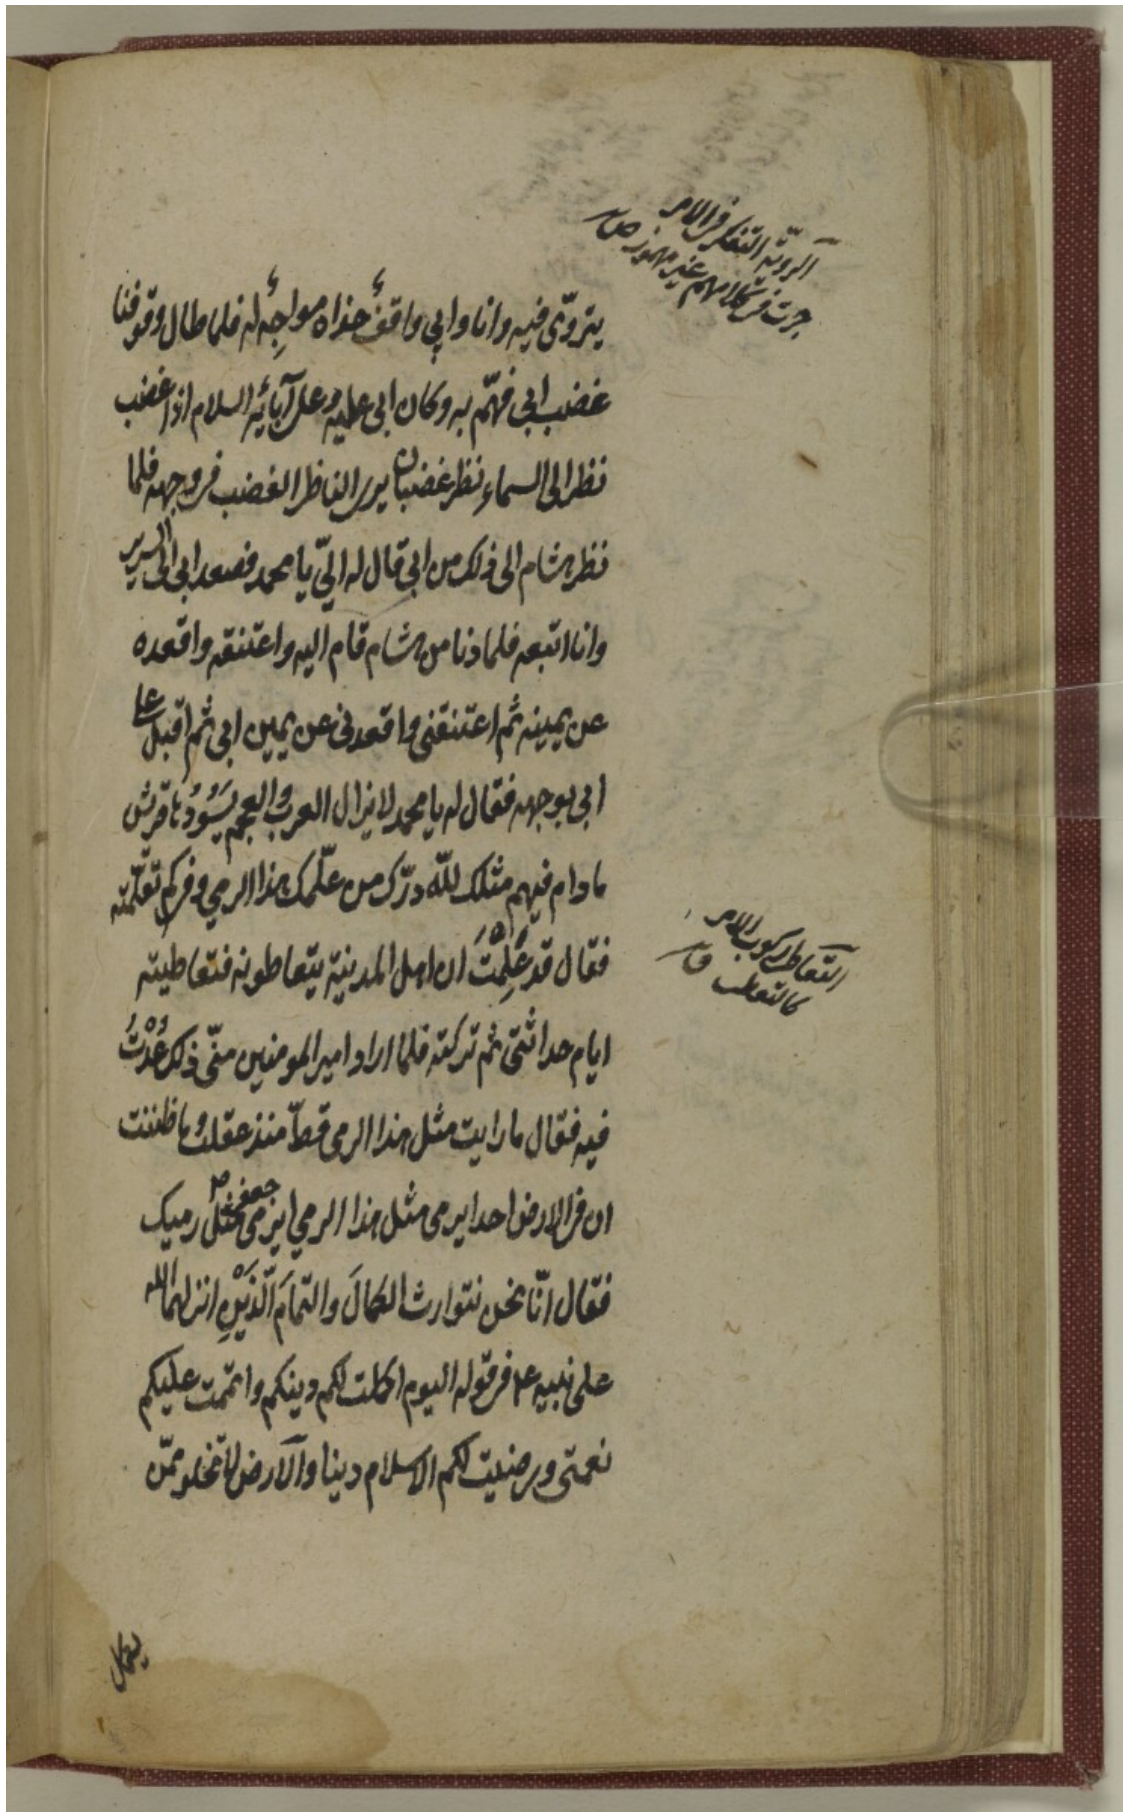 الرويّة التفكر في الامر
جرت في كلامهم غير مهموز ص
يتروّى فيه وانا وابي واقفٌ حذاه مواجِه له فلما طال وقوفنا
غضب ابي فهمّ به وكان ابي عليه وعلى آبائه السلام اذا غضب
نظر الى السماءِ نظر غضبان يرى الناظر الغضب في وجهه فلما
نظر هشام الى ذلك من ابي قال له اليّ يا محمد فصعد ابي الى السرير
وانا اتبعه فلما دنا من هشام قام اليه واعتنقه واقعده
عن يمينه ثم اعتنقني واقعدني عن يمين ابي ثم اقبل على
ابي بوجهه فقال له يا محمد لا يزال العرب والعجم يَسُودُها قريش
ما دام فيهم مثلك لله درّك من علّمك هذا الرمي وفي كم تعلّمته
فقال قد عَلِمْتَ ان اهل المدينة يتعاطونه فتعاطيته
التعاطي ركوب الامر
كالتعطي ق
ايام حداثتي ثم تركته فلما اراد امير المومنين منّي ذلك عُدْتُ
فيه فقال ما رايت مثل هذا الرمي قطّ منذ عقلت وما ظننت
ان في الارض احدا يرمي مثل هذا الرمي ايرمي جعفر مثل رميك
فقال انّا نحن نتوارث الكمالَ والتمامَ الّذَيْنِ انزلهما الله
على نبيه ع في قوله اليوم اكملت لكم دينكم واتممت عليكم
نعمتي ورضيت لكم الاسلام دينا والارض لا تخلو ممّن
يكمل